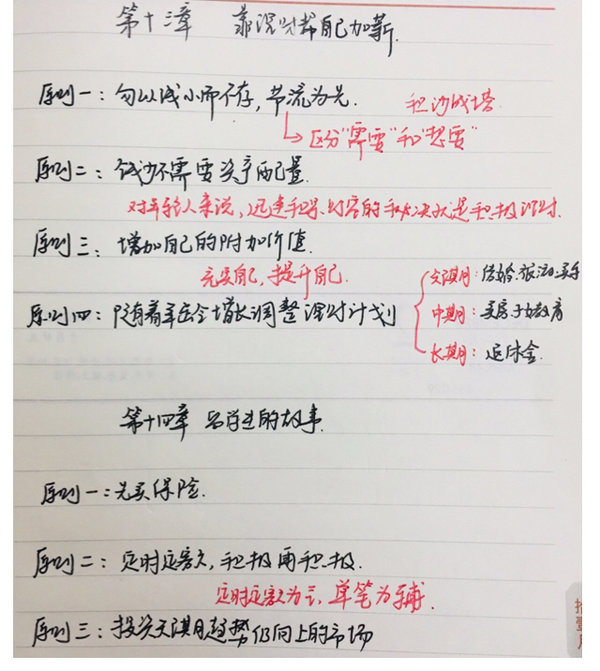 第十三章 靠理财帮自己加薪.
原则一：勿以钱小而不存，节流为先.
积沙成塔
区分“需要”和“想要”
原则二：钱少不需要资产配置.
对年轻人来说，迅速积累财富的秘诀就是积极理财.
原则三：增加自己的附加价值.
充实自己，提升自己.
原则四：随着年龄增长调整理财计划
短期：结婚.旅游.买车
中期：买房子教育
长期：退休金.
第十四章 吕学进的故事.
原则一：先买保险.
原则二：定时定额，积极再积极.
定时定额为主，单笔为辅.
原则三：投资长期趋势仍向上的市场